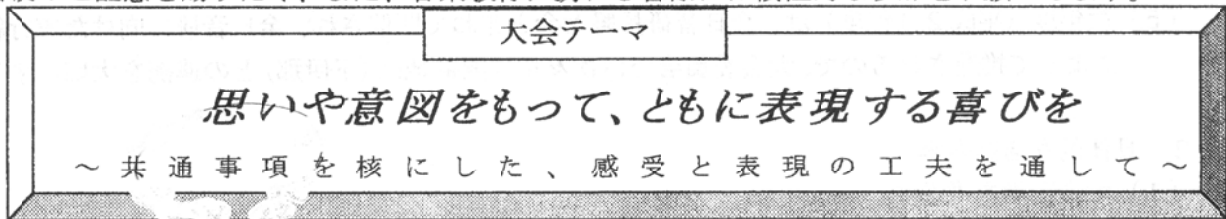 大会テーマ
思いや意図をもって、ともに表現する喜びを
～共通事項を核にした、感受と表現の工夫を通して～